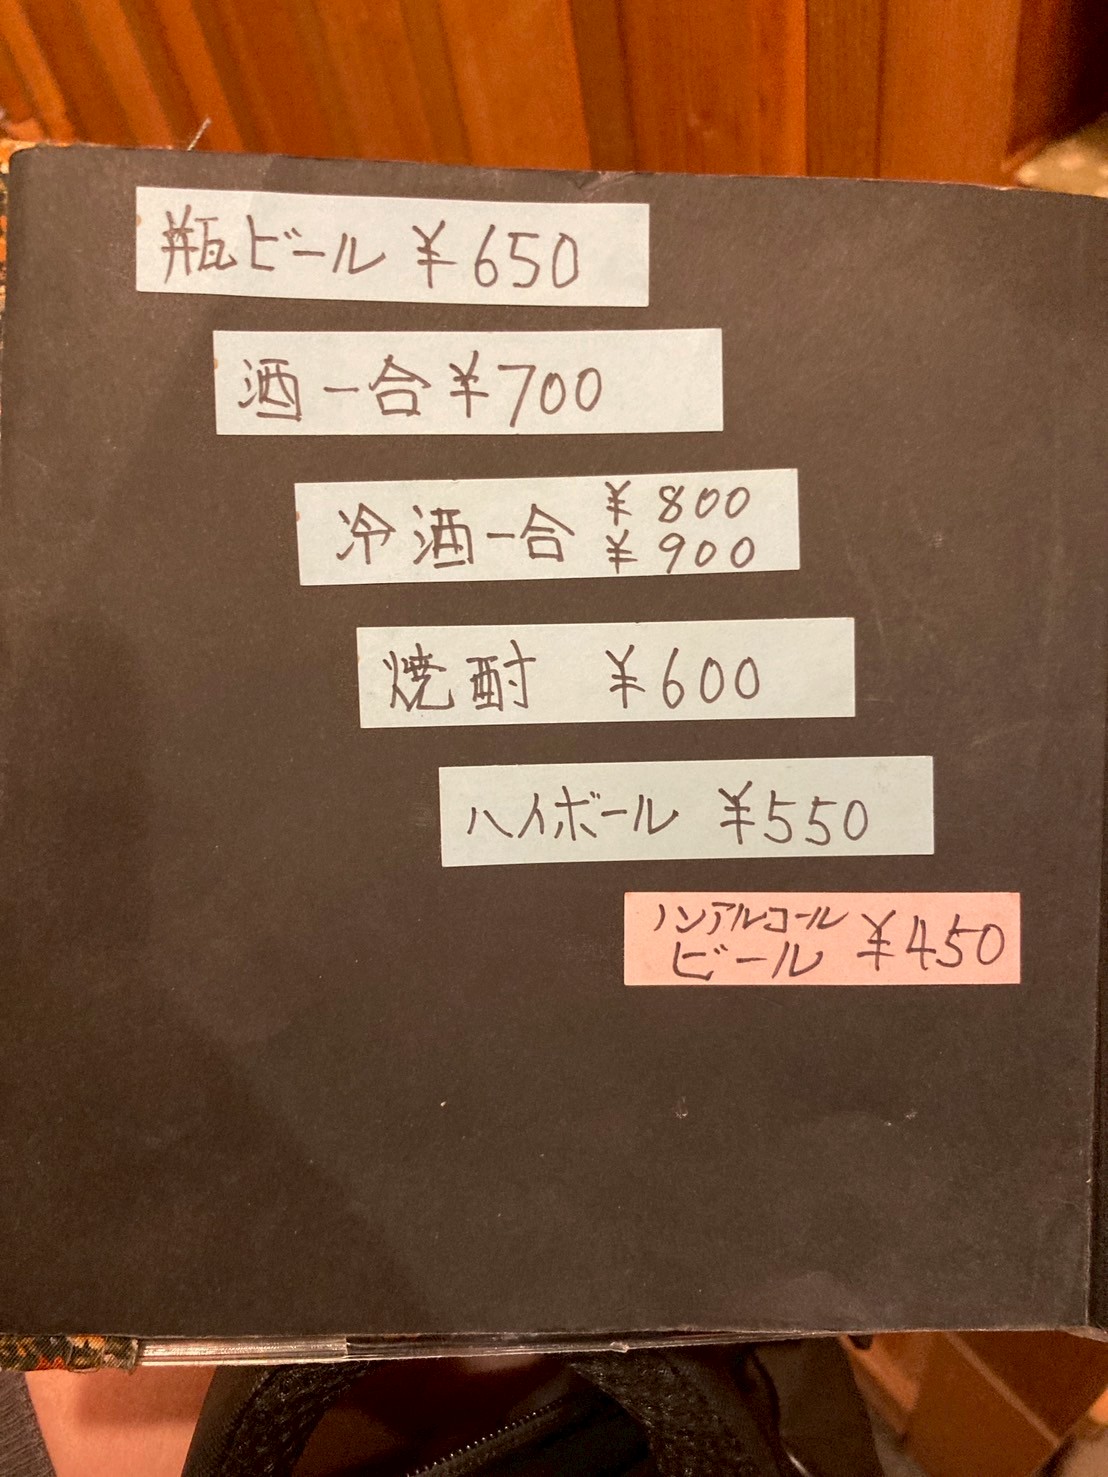 瓶ビール ¥650
酒一合 ¥700
冷酒一合 ¥800
¥900
焼酎 ¥600
ハイボール ¥550
ノンアルコール
ビール ¥450